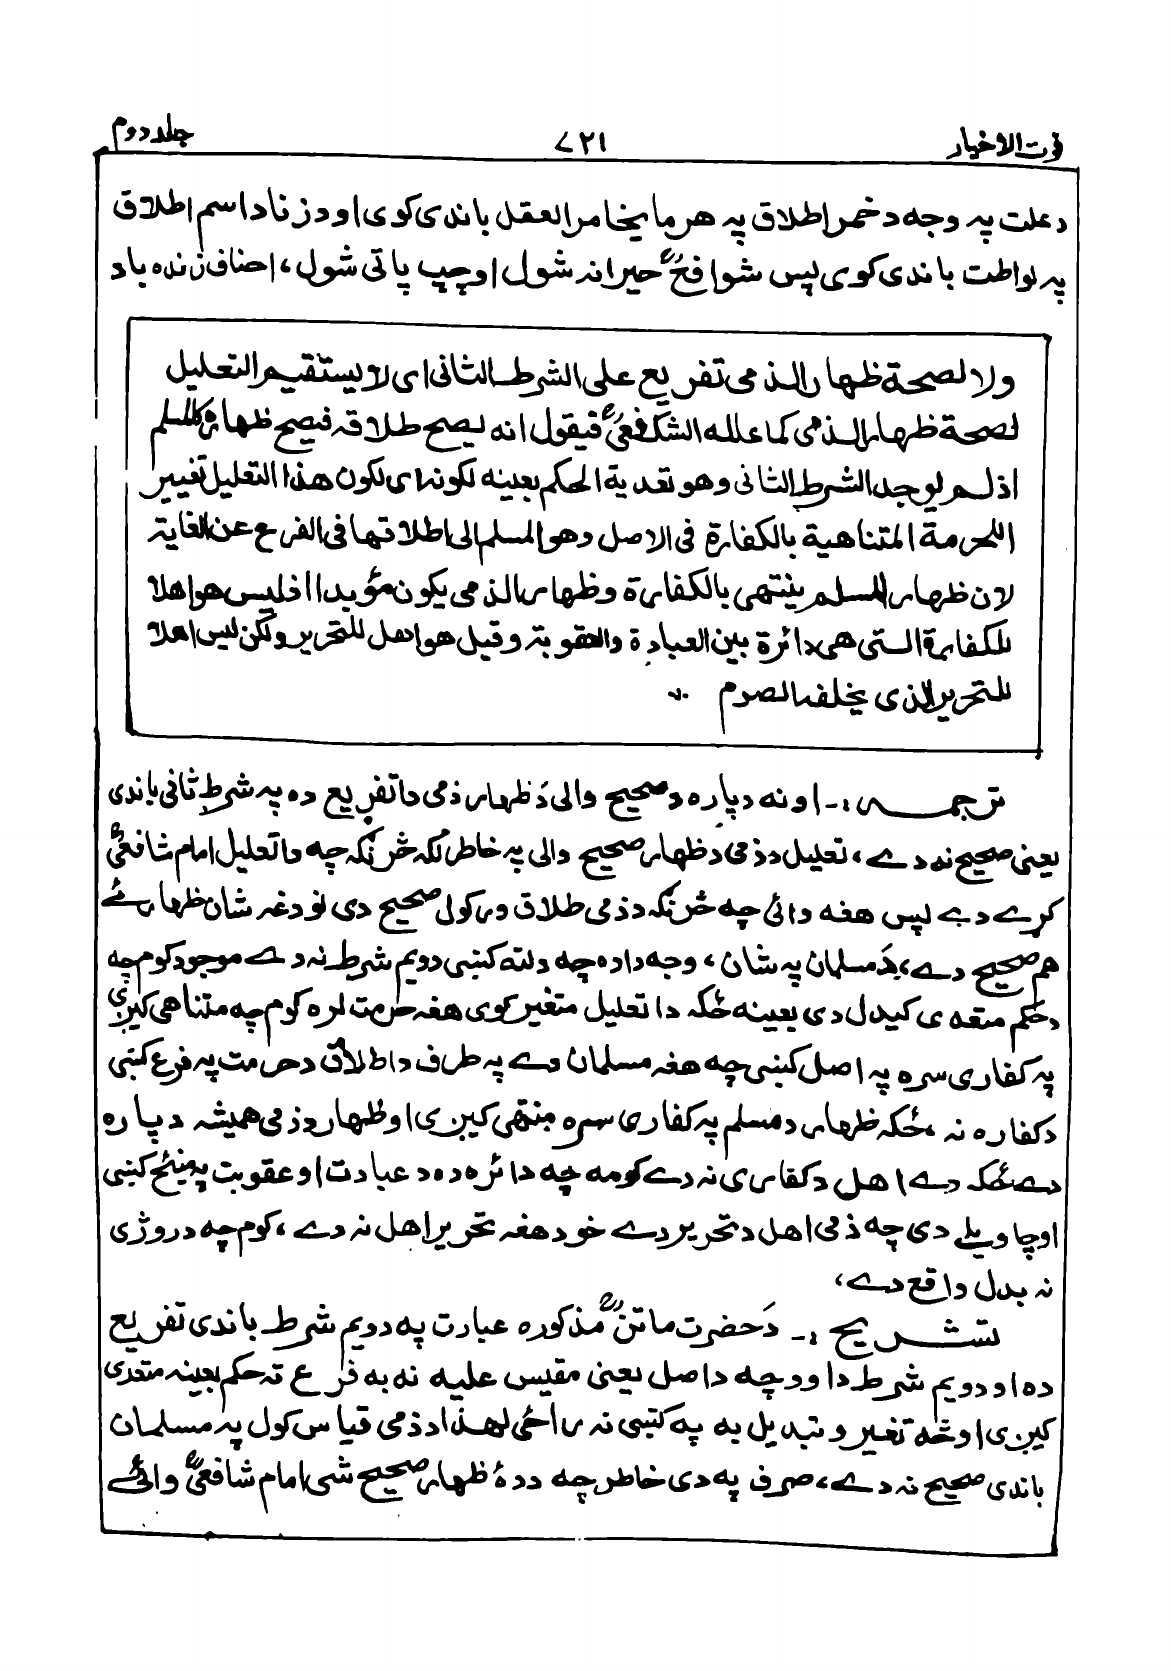 قوت الاخیار ۷۲۱ جلد دوم
د علت په وجه د خمر اطلاق په هر ما یخامر العقل باندی کوی او د زنا د اسم اطلاق
په لواطت باندی کوی پس شوافعؒ حیرانه شول او چپ پاتی شول، احناف زنده باد
ولا لصحة ظهار الذمی تفریع علی الشرط الثانی ای لا یستقیم التعلیل
لصحة ظهار الذمی کما علله الشافعیؒ فیقول انه یصح طلاقه فیصح ظهاره کالمسلم
اذ لم یوجد الشرط الثانی وهو تعدیة الحکم بعینه لکونه ای لکون هذا التعلیل تغییر
اللحرمة المتناهیة بالکفارة فی الاصل وهو المسلم الی اطلاقها فی الفرع عن الغایة
لان ظهار المسلم ینتهی بالکفارة وظهار الذمی یکون مؤبدا اذ لیس هو اهلا
للکفارة التی هی دائرة بین العبادة والعقوبة وقیل هو اهل للتحریر ولکن لیس اهلا
للتحریر الذی یخلفه الصوم ۷۰
ترجمه :- او نه دپاره د صحیح والی دَ ظهار ذمی دا تفریع ده په شرط ثانی باندی
یعنی صحیح نه دے، تعلیل د ذمی د ظهار صحیح والی په خاطر لکه څرنګه چه دا تعلیل امام شافعیؒ
کړے دے پس هغه وائی چه څرنګه د ذمی طلاق ورکول صحیح دی نو دغه شان ظهار ئے
هم صحیح دے، دَ مسلمان په شان، وجه داده چه دلته کښی دویم شرط نه دے موجود کوم چه
د حکم متعدی کیدل دی بعینه ځکه دا تعلیل متغیر کوی هغه حرمت لره کوم چه متناهی کیږی
په کفاری سره په اصل کښی چه هغه مسلمان دے په طرف د اطلاق د حرمت په فرع کښی
د کفاره نه، ځکه ظهار د مسلم په کفاری سره منتهی کیږی او ظهار د ذمی همیشه دپاره
دے ځکه دے اهل د کفاری نه دے کومه چه دائره ده د عبادت او عقوبت په مینځ کښی
او چا ویلے دی چه ذمی اهل د تحریر دے خو د هغه تحریر اهل نه دے، کوم چه د روژی
نه بدل واقع دے،
تشریح :- دَ حضرت ماتنؒ مذکوره عبارت په دویم شرط باندی تفریع
ده او دویم شرط دا وو چه د اصل یعنی مقیس علیه نه به فرع ته حکم بعینه متعدی
کیږی او څه تغیر و تبدیل به په کښی نه راځی لهذا د ذمی قیاس کول په مسلمان
باندی صحیح نه دے، صرف په دی خاطر چه د دهٔ ظهار صحیح شی امام شافعیؒ وائے